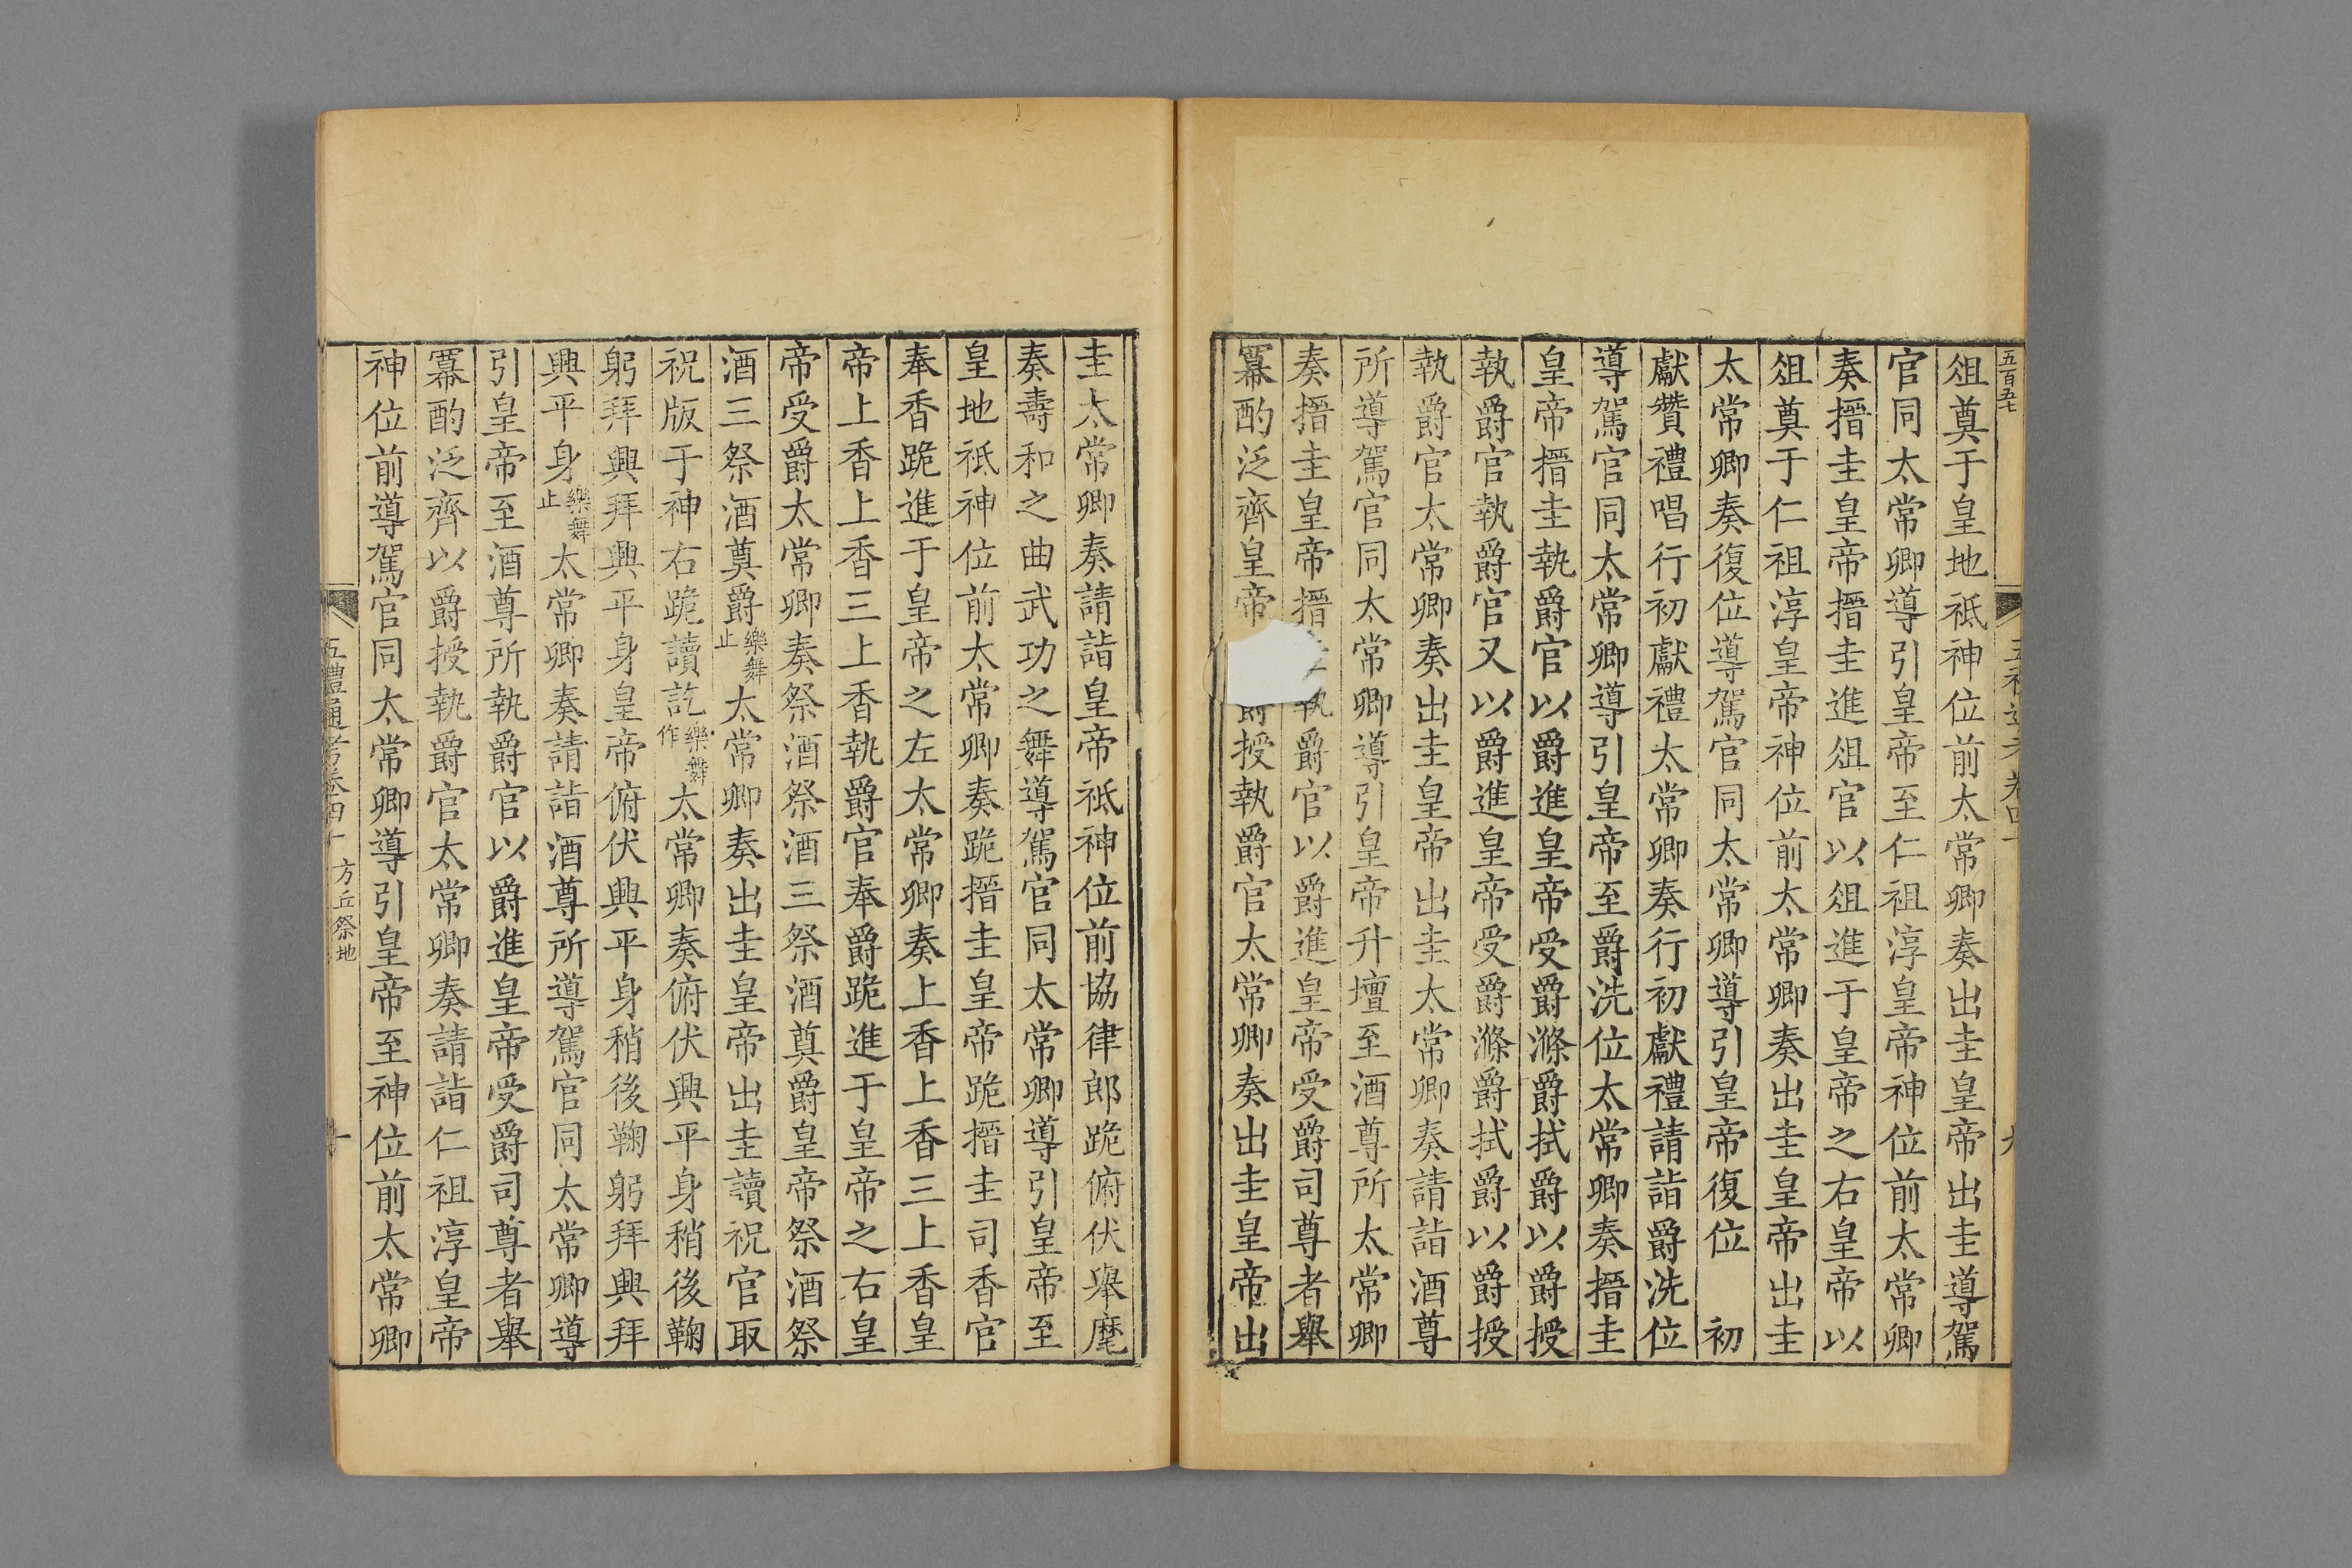 五百五七
俎奠于皇地祇神位前太常卿奏出圭皇帝出圭導駕
官同太常卿導引皇帝至仁祖淳皇帝神位前太常卿
奏搢圭皇帝搢圭進俎官以俎進于皇帝之右皇帝以
俎奠于仁祖淳皇帝神位前太常卿奏出圭皇帝出圭
太常卿奏復位導駕官同太常卿導引皇帝復位 初
獻贊禮唱行初獻禮太常卿奏行初獻禮請詣爵洗位
導駕官同太常卿導引皇帝至爵洗位太常卿奏搢圭
皇帝搢圭執爵官以爵進皇帝受爵滌爵拭爵以爵授
執爵官執爵官又以爵進皇帝受爵滌爵拭爵以爵授
執爵官太常卿奏出圭皇帝出圭太常卿奏請詣酒尊
所導駕官同太常卿導引皇帝升壇至酒尊所太常卿
奏搢圭皇帝搢執爵官以爵進皇帝受爵司尊者舉
冪酌泛齊皇帝爵授執爵官太常卿奏出圭皇帝出
圭太常卿奏請詣皇帝祇神位前協律郎跪俯伏舉麾
奏壽和之曲武功之舞導駕官同太常卿導引皇帝至
皇地祇神位前太常卿奏跪搢圭皇帝跪搢圭司香官
奉香跪進于皇帝之左太常卿奏上香上香三上香皇
帝上香上香三上香執爵官奉爵跪進于皇帝之右皇
帝受爵太常卿奏祭酒祭酒三祭酒奠爵皇帝祭酒祭
酒三祭酒奠爵樂舞止太常卿奏出圭皇帝出圭讀祝官取
祝版于神右跪讀訖樂舞作太常卿奏俯伏興平身稍後鞠
躬拜興拜興平身皇帝俯伏興平身稍後鞠躬拜興拜
興平身樂舞止太常卿奏請詣酒尊所導駕官同太常卿導
引皇帝至酒尊所執爵官以爵進皇帝受爵司尊者舉
冪酌泛齊以爵授執爵官太常卿奏請詣仁祖淳皇帝
神位前導駕官同太常卿導引皇帝至神位前太常卿
五禮通考卷四十 方丘祭地